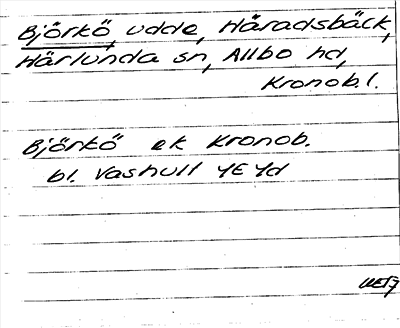 Björkö, udde, Häradsbäck,
Härlunda sn, Allbo hd,
Kronob. l.
Björkö ek Kronob.
bl. Vashull 4E 4d